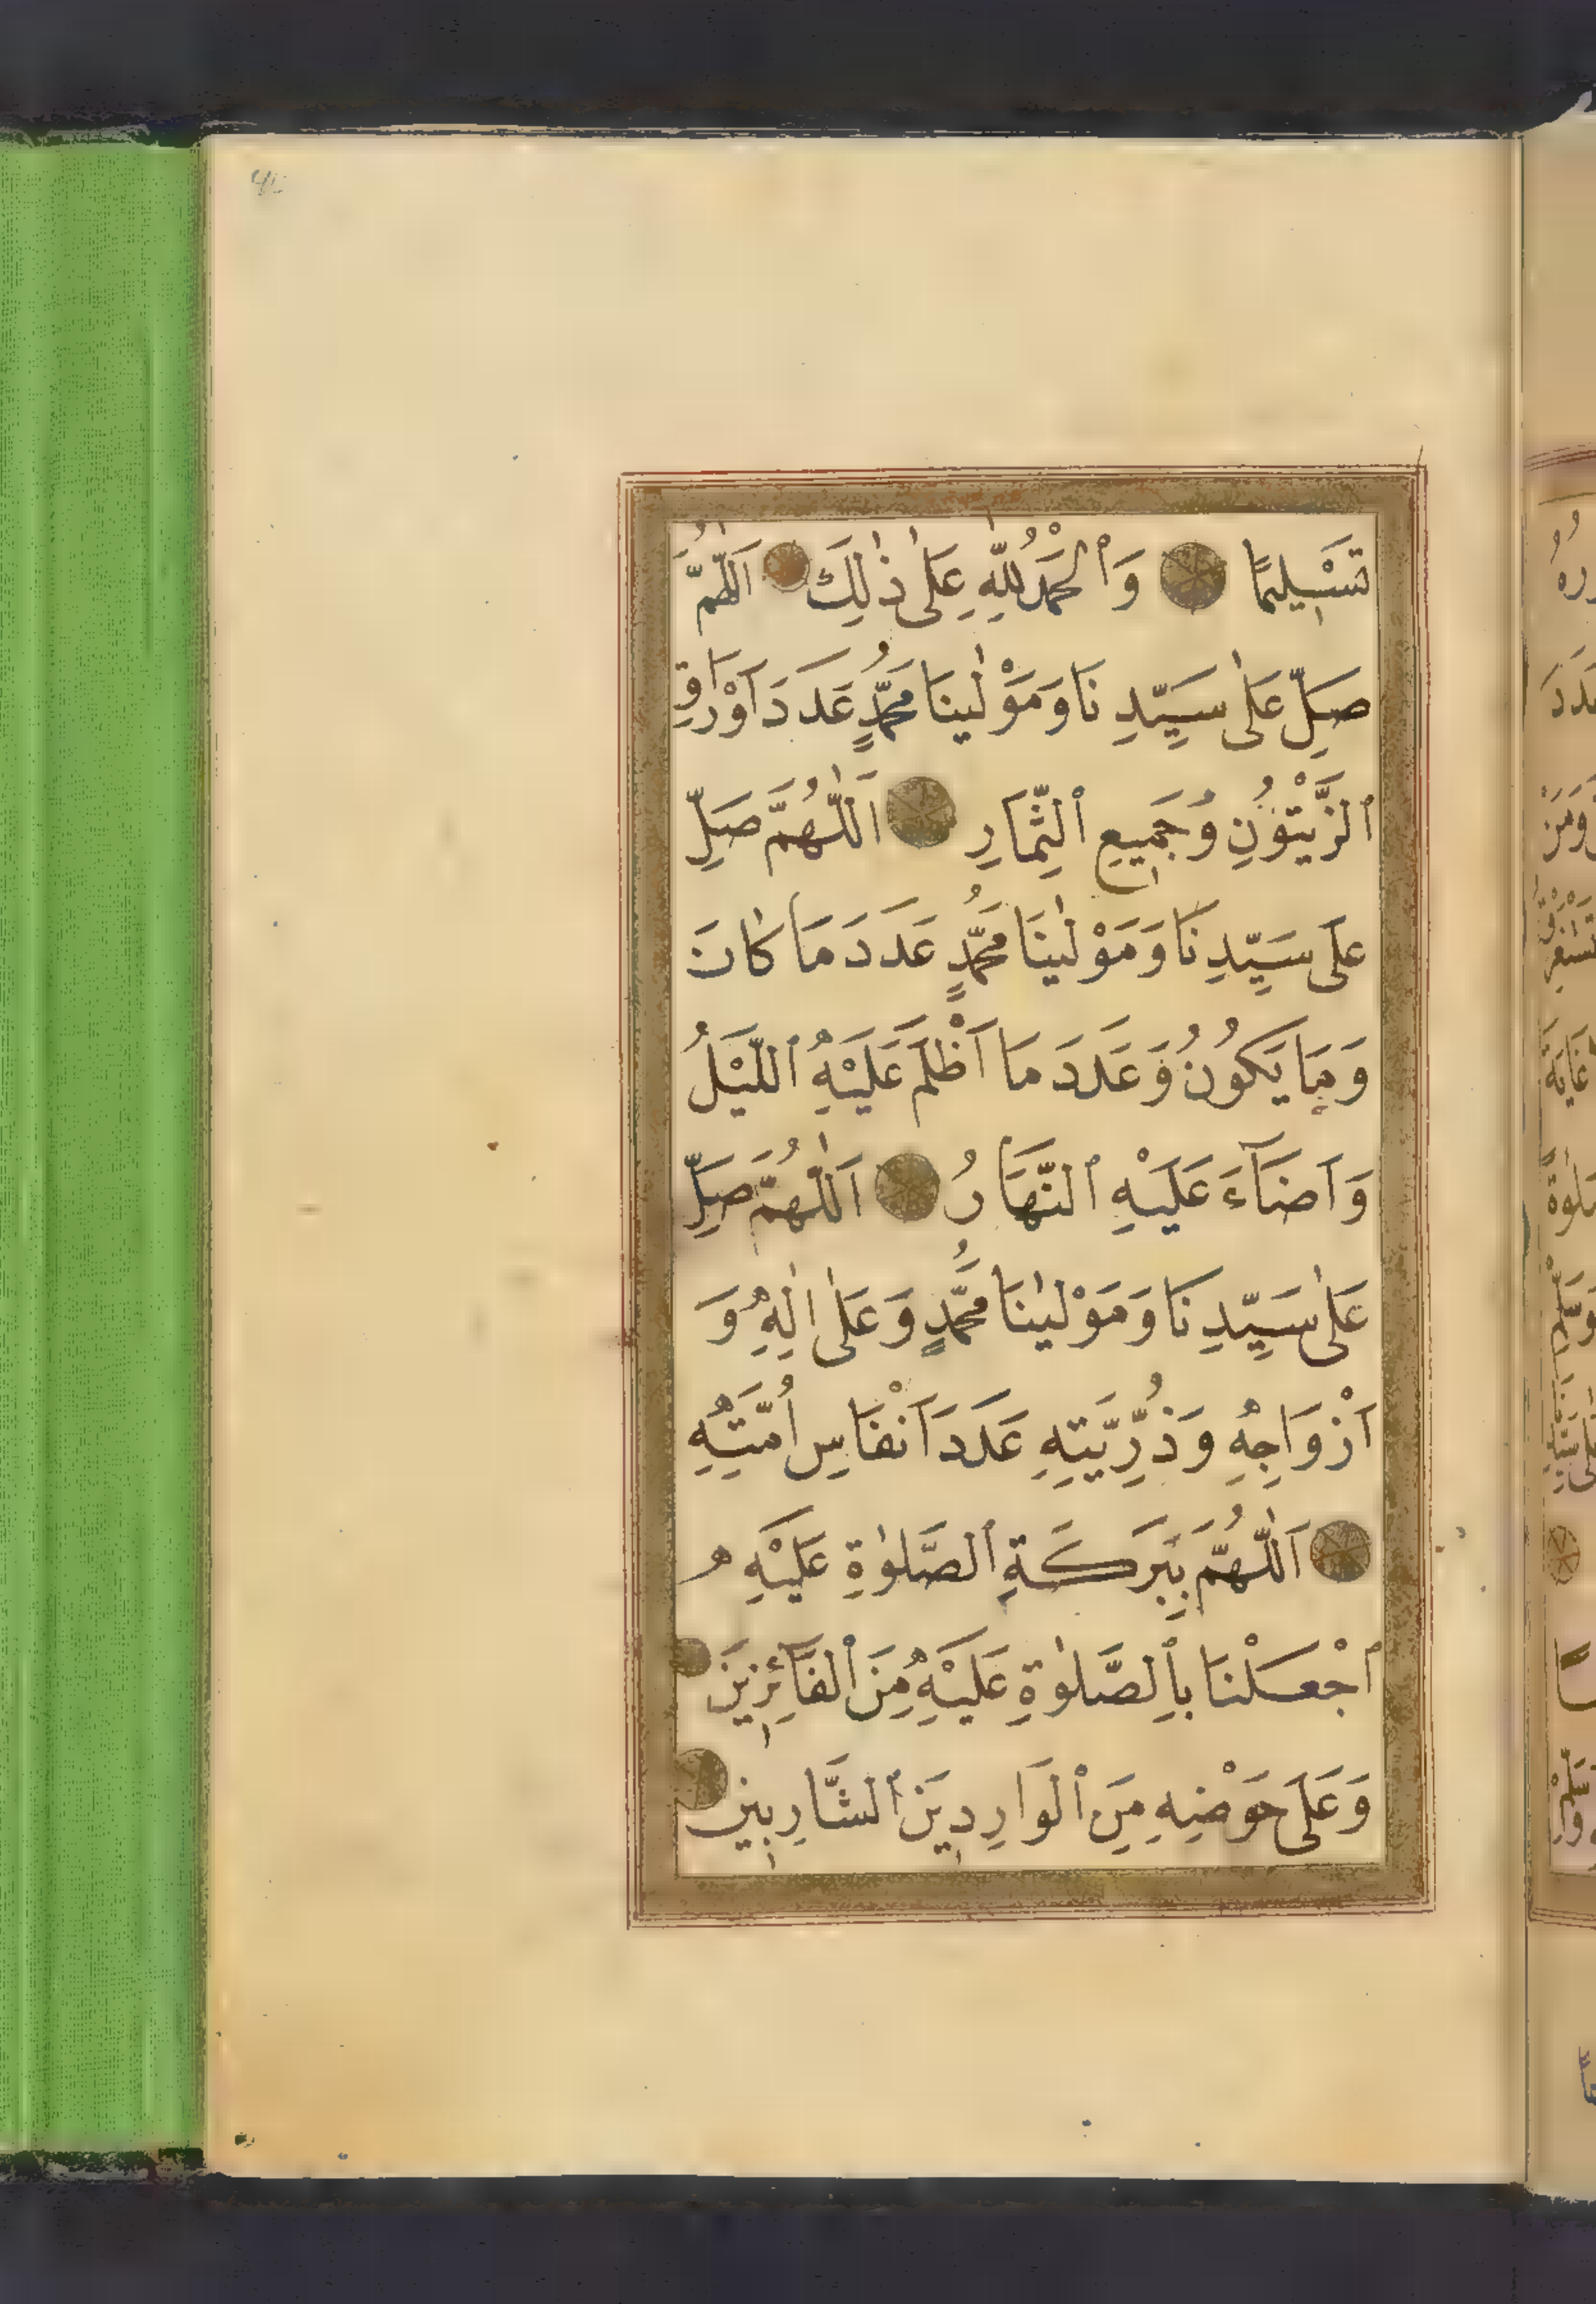 تَسْلِيمًا وَٱلْحَمْدُ لِلّٰهِ عَلٰى ذٰلِكَ اَللّٰهُمَّ
صَلِّ عَلٰى سَيِّدِنَا وَمَوْلٰينَا مُحَمَّدٍ عَدَدَ اَوْرَاقِ
ٱلزَّيْتُونِ وَجَمِيعِ ٱلثِّمَارِ اَللّٰهُمَّ صَلِّ
عَلَى سَيِّدِنَا وَمَوْلٰينَا مُحَمَّدٍ عَدَدَ مَا كَانَ
وَمَا يَكُونُ وَعَدَدَ مَا اَظْلَمَ عَلَيْهِ ٱللَّيْلُ
وَاَضَآءَ عَلَيْهِ ٱلنَّهَارُ اَللّٰهُمَّ صَلِّ
عَلٰى سَيِّدِنَا وَمَوْلٰينَا مُحَمَّدٍ وَعَلٰى اٰلِهِ وَ
اَزْوَاجِهِ وَذُرِّيَّتِهِ عَدَدَ اَنْفَاسِ اُمَّتِهِ
اَللّٰهُمَّ بِبَرَكَةِ ٱلصَّلٰوةِ عَلَيْهِ
ٱجْعَلْنَا بِٱلصَّلٰوةِ عَلَيْهِ مِنَ ٱلْفَآئِزِينَ
وَعَلَى حَوْضِهِ مِنَ ٱلْوَارِدِينَ ٱلشَّارِبِينَ